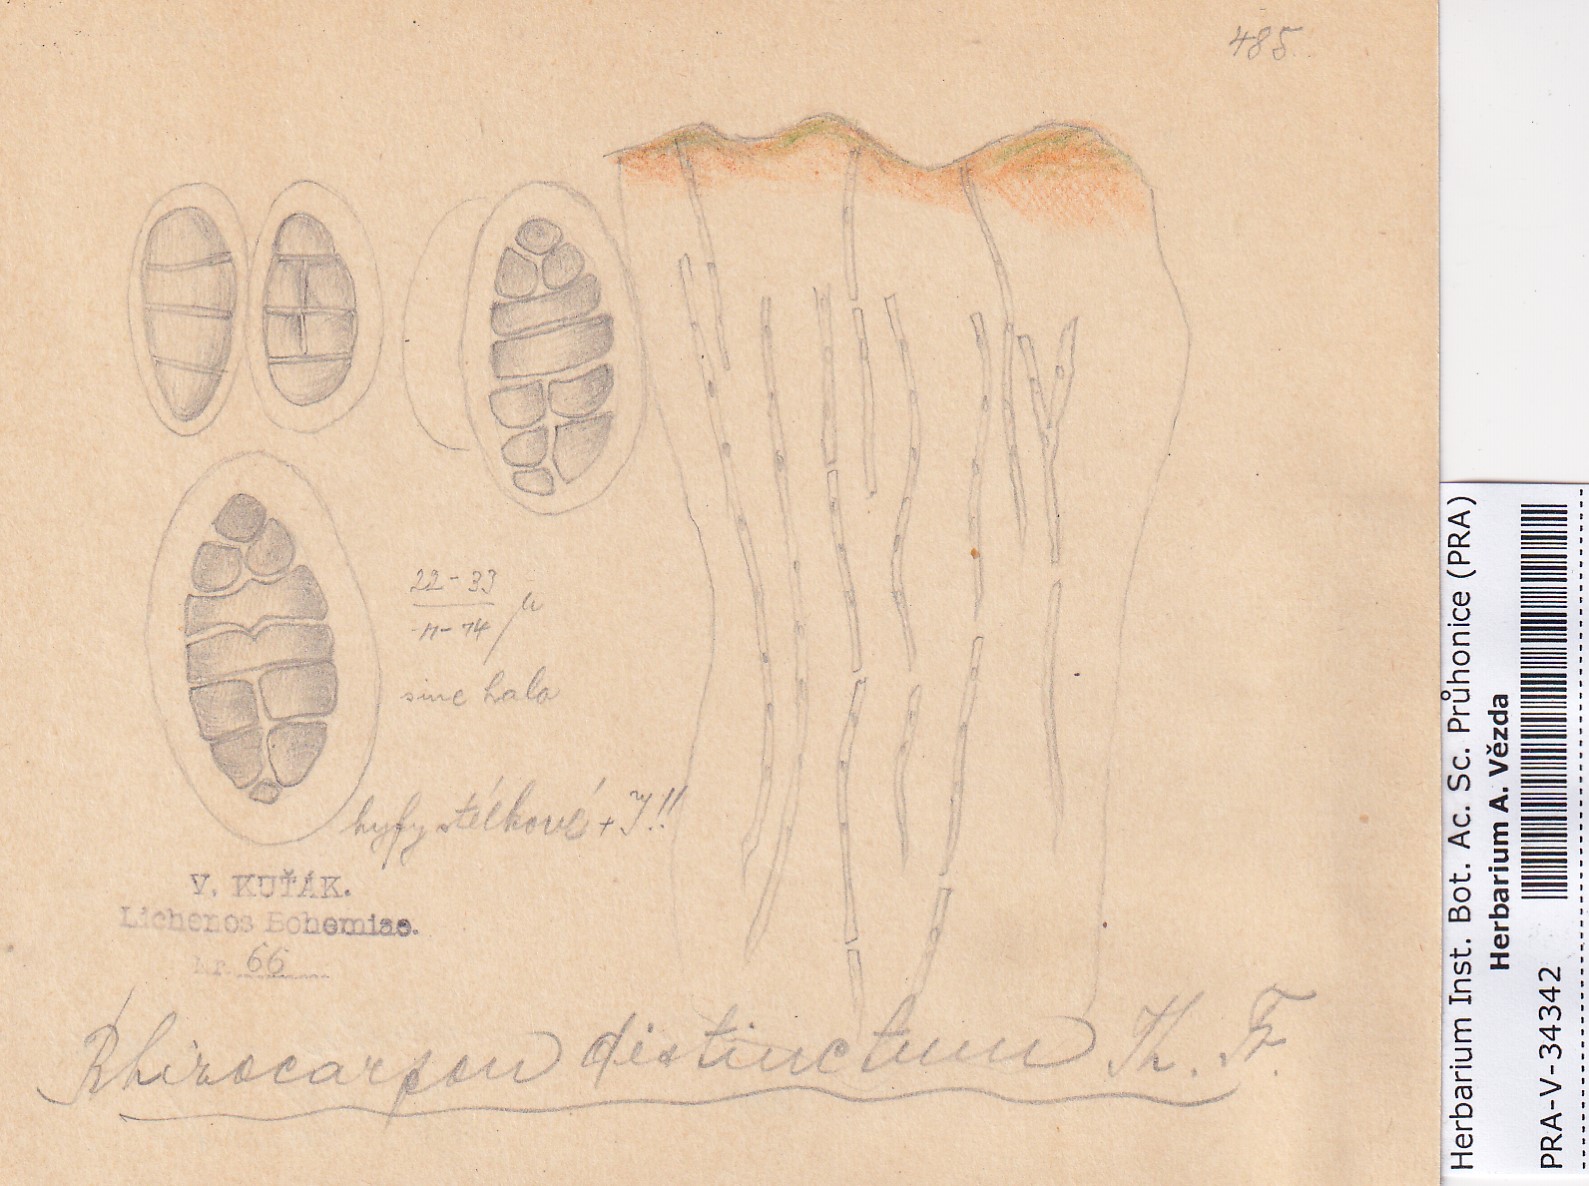 485.
22-33
11-14 µ
sine halo
hyfy stélkové + J!!
V. KUŤÁK.
Lichenos Bohemiae.
Nr. 66
Rhizocarpon distinctum Th. Fr.
Herbarium Inst. Bot. Ac. Sc. Průhonice (PRA)
Herbarium A. Vězda
PRA-V-34342